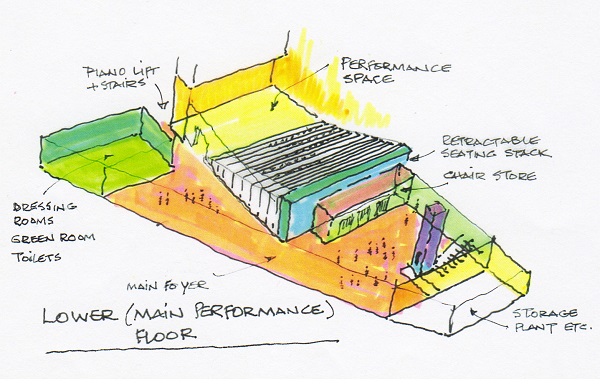 PIANO LIFT
+ STAIRS
PERFORMANCE
SPACE
RETRACTABLE
SEATING STACK
CHAIR STORE
DRESSING
ROOMS
GREEN ROOM
TOILETS
MAIN FOYER
LOWER (MAIN PERFORMANCE)
FLOOR
STORAGE
PLANT ETC.